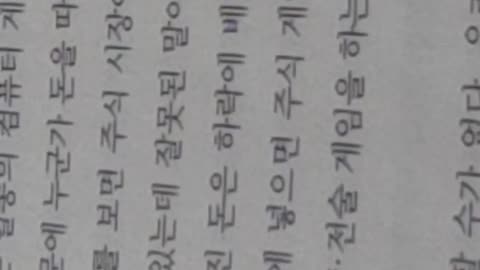 일종의 컴퓨터 게
문에 누군가 돈을 따
를 보면 주식 시장
있는데 잘못된 말이
진 돈은 하락에 베
에 넣으면 주식 게
전술 게임을 하는
할 수가 없다